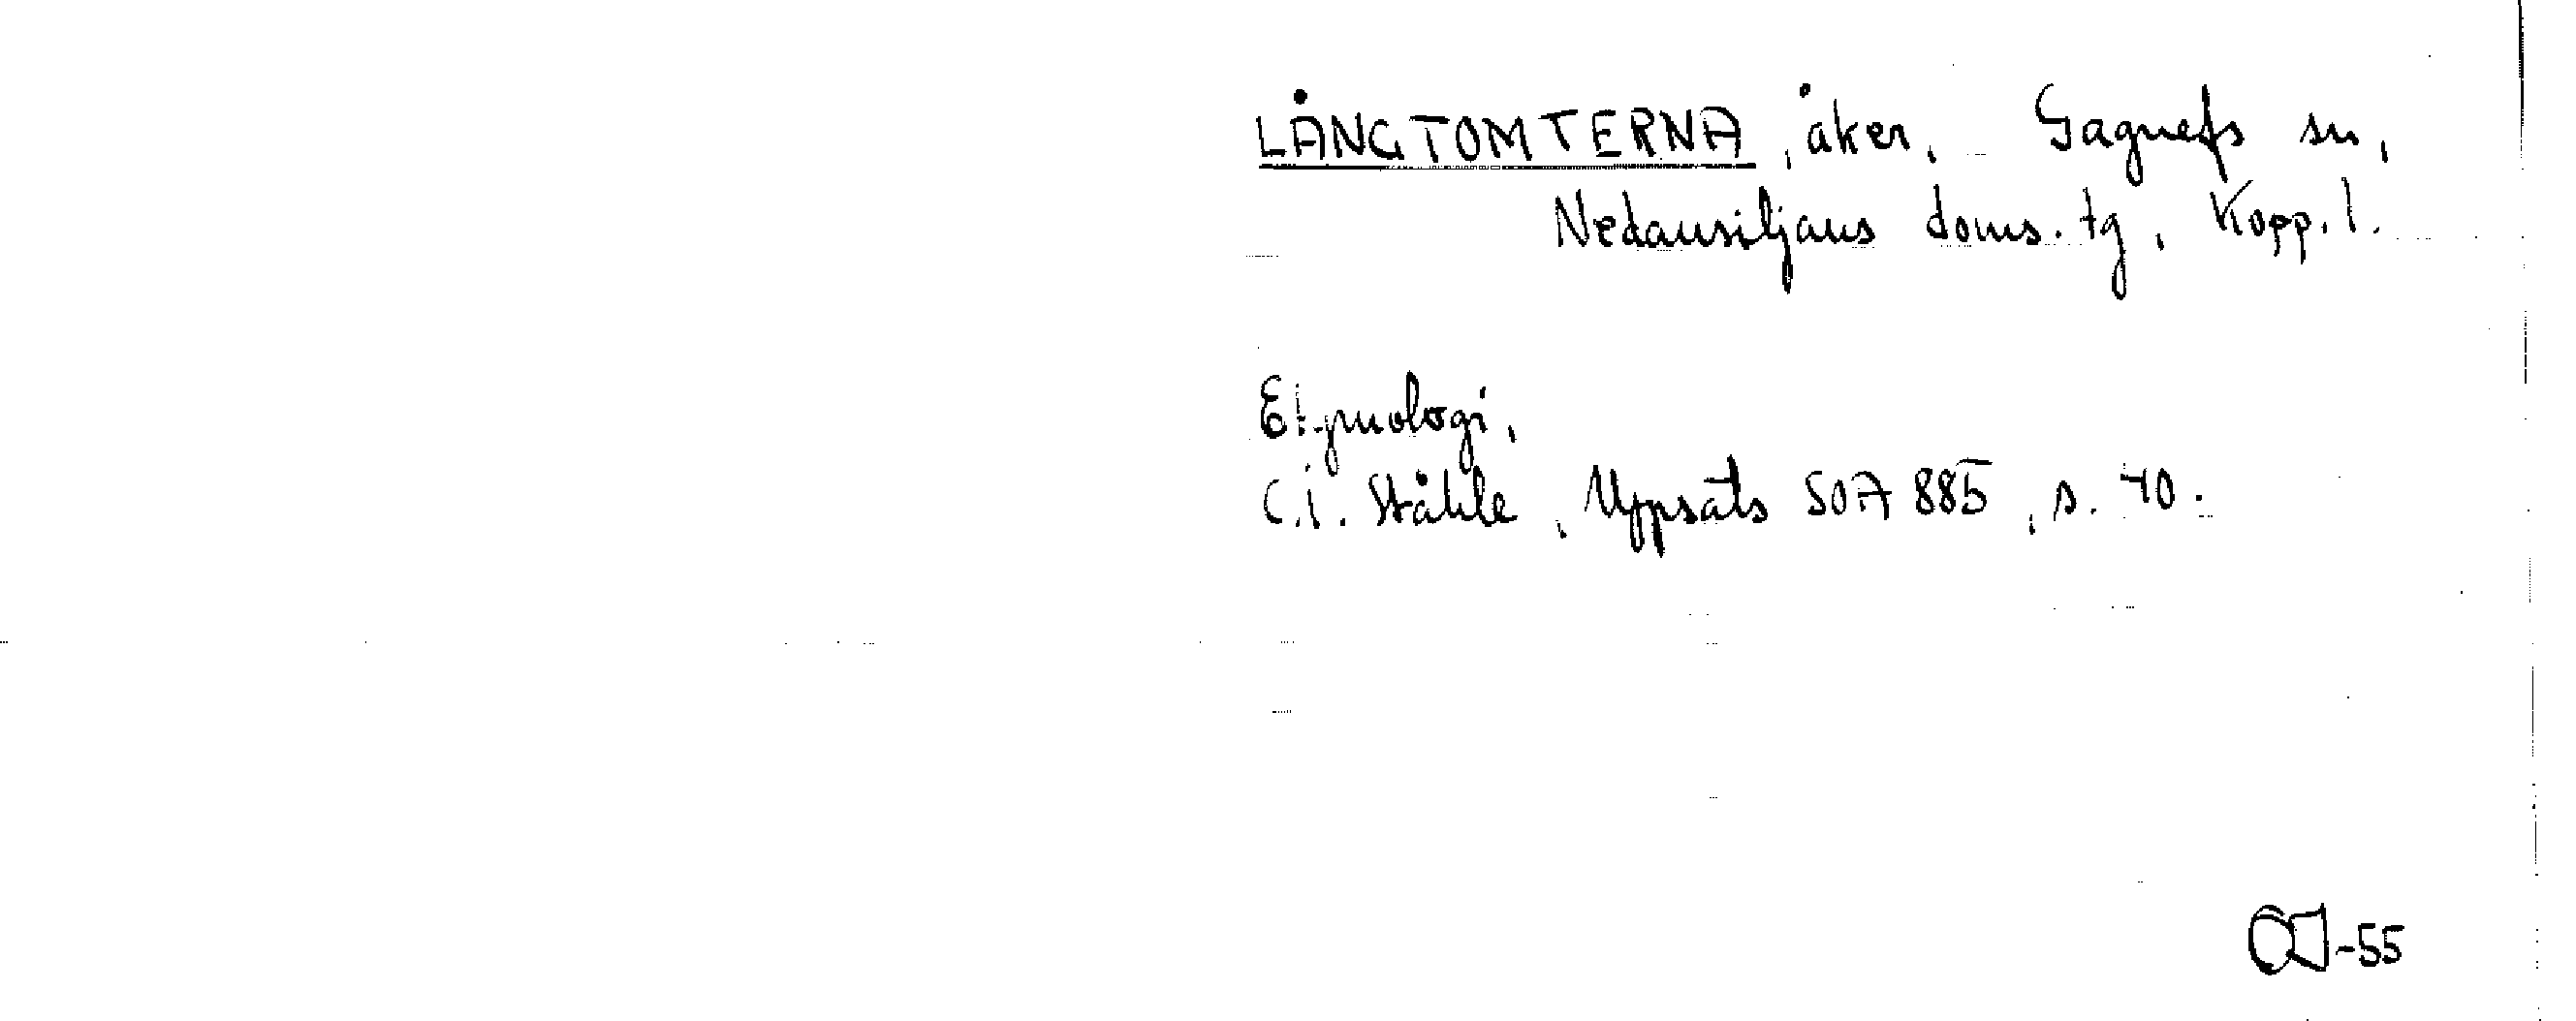 LÅNGTOMTERNA, åker, Gagnefs sn,
Nedansiljans doms. tg, Kopp. l.
Etymologi,
C.I. Ståhle, Uppsats SOA 885, s. 40.
-55